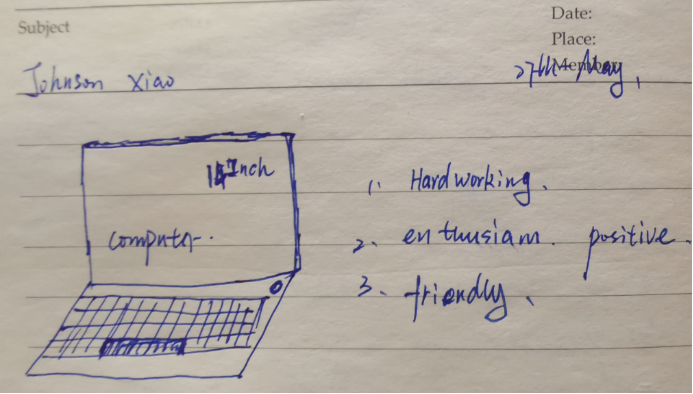 Subject
Date:
Place:
Member
Johnson Xiao
27th May,
Inch
computer.
1. Hardworking.
2. enthusiam. positive.
3. friendly.